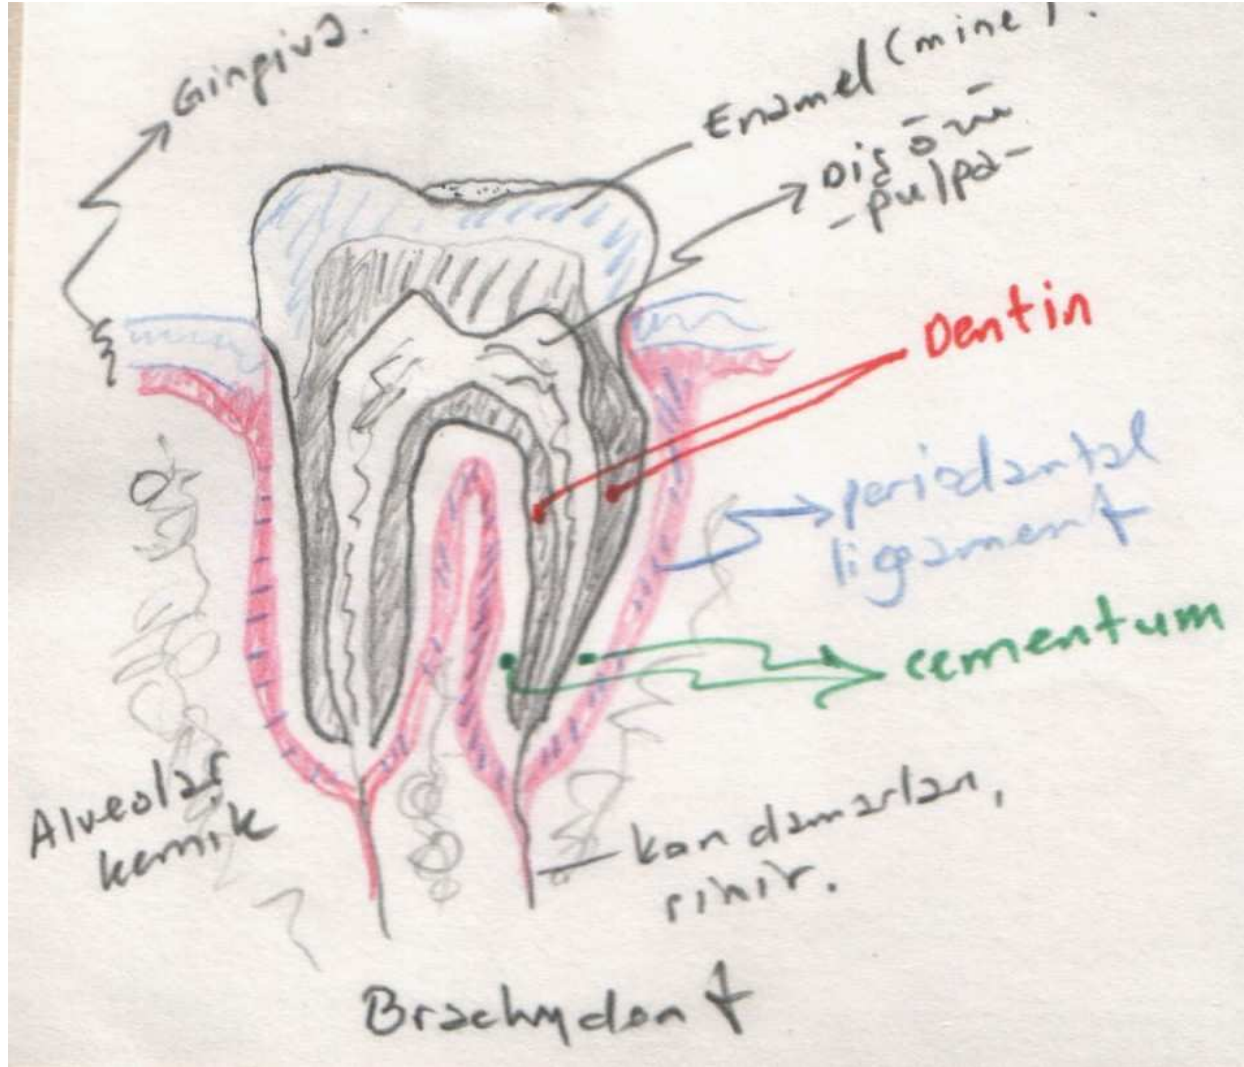 Gingiva.
Enamel (mine).
Diş özü
-pulpa-
Dentin
periodantal
ligament
cementum
Alveolar
kemik
kan damarları,
sinir.
Brachydont